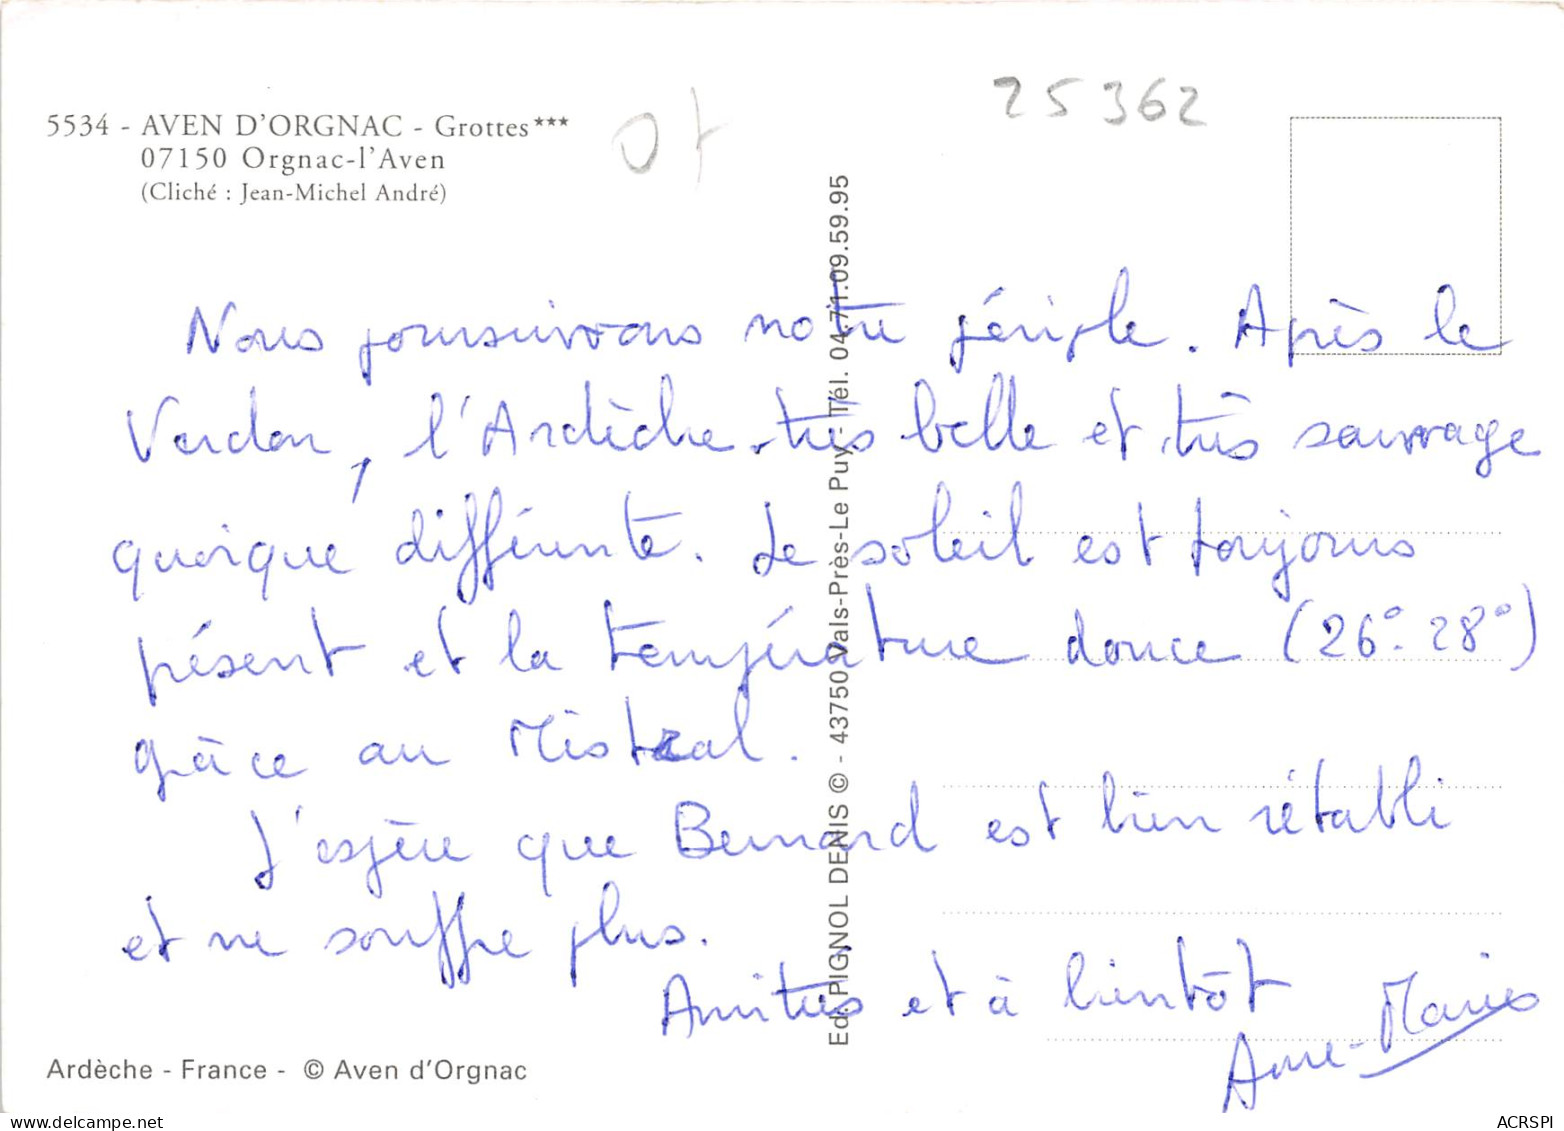 25362
5534 - AVEN D'ORGNAC - Grottes***
07150 Orgnac-l'Aven
(Cliché : Jean-Michel André)
Nous poursuivons notre périple. Après le
Verdon, l'Ardèche très belle et très sauvage
quoique différente. Le soleil est toujours
présent et la température douce (26°-28°)
grâce au Mistral.
J'espère que Bernard est bien rétabli
et ne souffre plus.
Amitiés et à bientôt
Anne-Marie
Ed. PIGNOL DENIS © - 43750 Vals-Près-Le Puy - Tél. 04.71.09.59.95
Ardèche - France - © Aven d'Orgnac
delcampe.net
ACRSPI